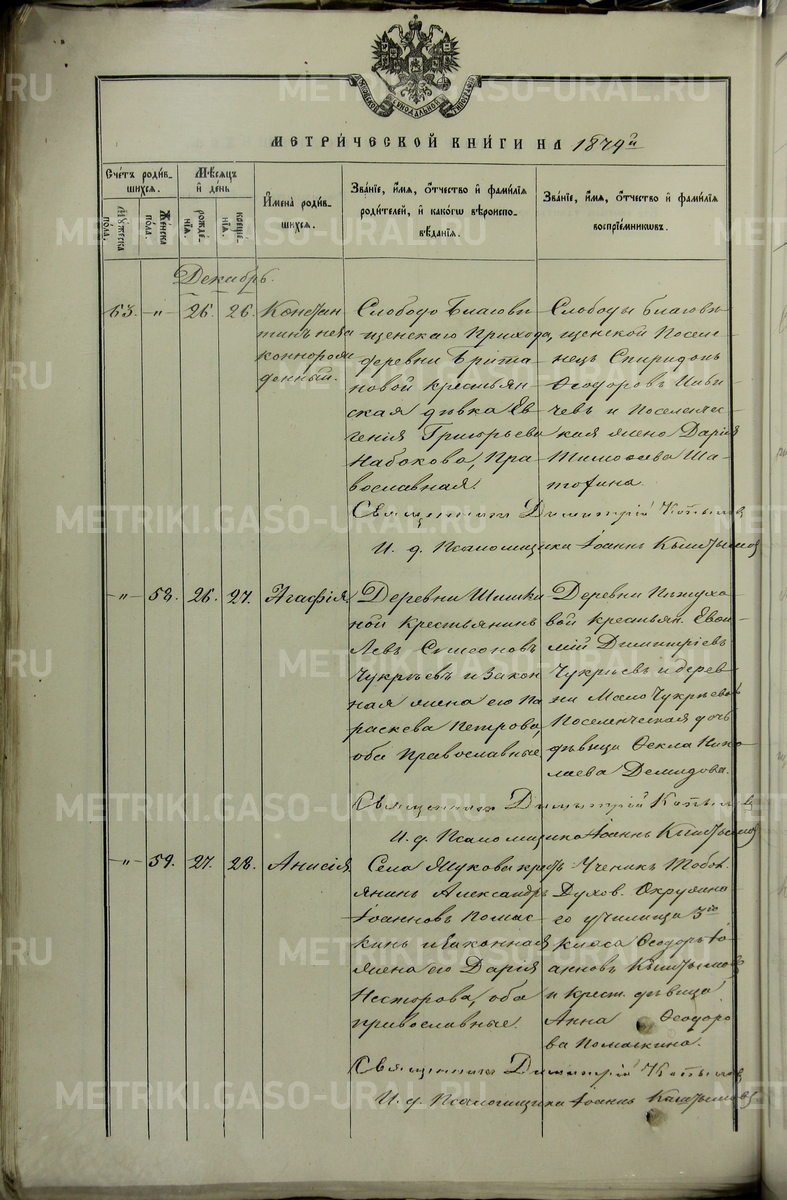 МЕТРИ́ЧЕСКОЙ КНИ́ГИ НА 1879й
Счетъ роди́вшихся.
Му́жеска пола.
Же́нска пола.
Мѣсяцъ и́ де́нь
рожде́нїѧ.
креще́нїѧ.
И́мена̀ роди́вшихся.
Зва́нїе, и́мѧ, о́тчество и́ фами́лїѧ роди́телей, и́ како́гѡ вѣроисповѣ́данїѧ.
Зва́нїе, и́мѧ, о́тчество и́ фами́лїѧ воспрїе́мникѡвъ.
Декабрь.
63. -"- 26. 26.
Констан
тинъ неза
коннорож
денный.
Слободо Благовѣ
щенскаго Прихода,
деревни
новой крестьян
ская дѣвка Ев
генія Григорьева
Набокова, Пра
вославная.
Слободы Благовѣ
щенской Поселе
нецъ Спиридонъ
Ѳеодоровъ
чевъ и Поселенчес
кая жена Дарія
Тимоѳеева Ша
Священникъ Димитрій Копыловъ
И. д. Псаломщика Іоаннъ
-"- 58. 26. 27. Агафія.
Деревни Шишки
ной Крестьянинъ
Левъ Симеоновъ
Чукрѣевъ и Закон
ная жена его Па
раскева Петрова,
оба Православные.
Деревни Пѣтухо
вой крестьян. Евѳи
мій Димитріевъ
Чукрѣевъ и дерев
ни Мало Чукрѣевой
Поселенческая дочь
дѣвица Ѳекла Нико
лаева Демидова.
Священникъ Димитрій Копыловъ
И. д. Псаломщика Іоаннъ
-"- 59. 27. 28. Анисія
Села Жукова крест
янинъ Александръ
Іоанновъ Помас
кинъ и Законная
жена его Дарія
Несторова, оба
православные.
Ученикъ Тобол.
Духов. Окружна
го училища 3го
класа Ѳеодоръ Іо
анновъ
и крест. дѣвица
Анна Ѳеодоро
ва Помаскина.
Священникъ Димитрій Копыловъ
И. д. Псаломщика Іоаннъ
METRIKI.GASO-URAL.RU